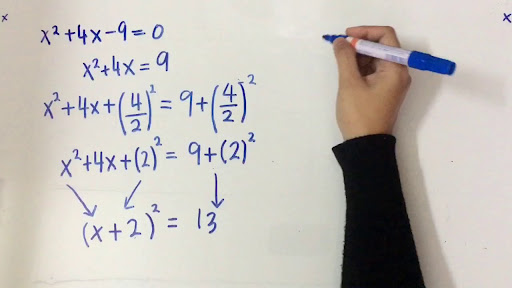 x² + 4x - 9 = 0
x² + 4x = 9
x² + 4x + (4/2)² = 9 + (4/2)²
x² + 4x + (2)² = 9 + (2)²
(x + 2)² = 13
x
x